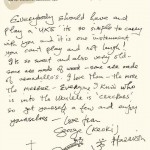 Everybody should have and
play a "UKE" its so simple to carry
with you and it is one instrument
you can't play and not laugh!
Its so sweet and also very old-
some are made of wood - some are made
of armadillos. I love them - the more
the merrier - Everyone I know who
is into the Ukulele is 'crackers'
so get yourself a few and enjoy
yourselves - Love from
George (KEOKI)
HARRISON